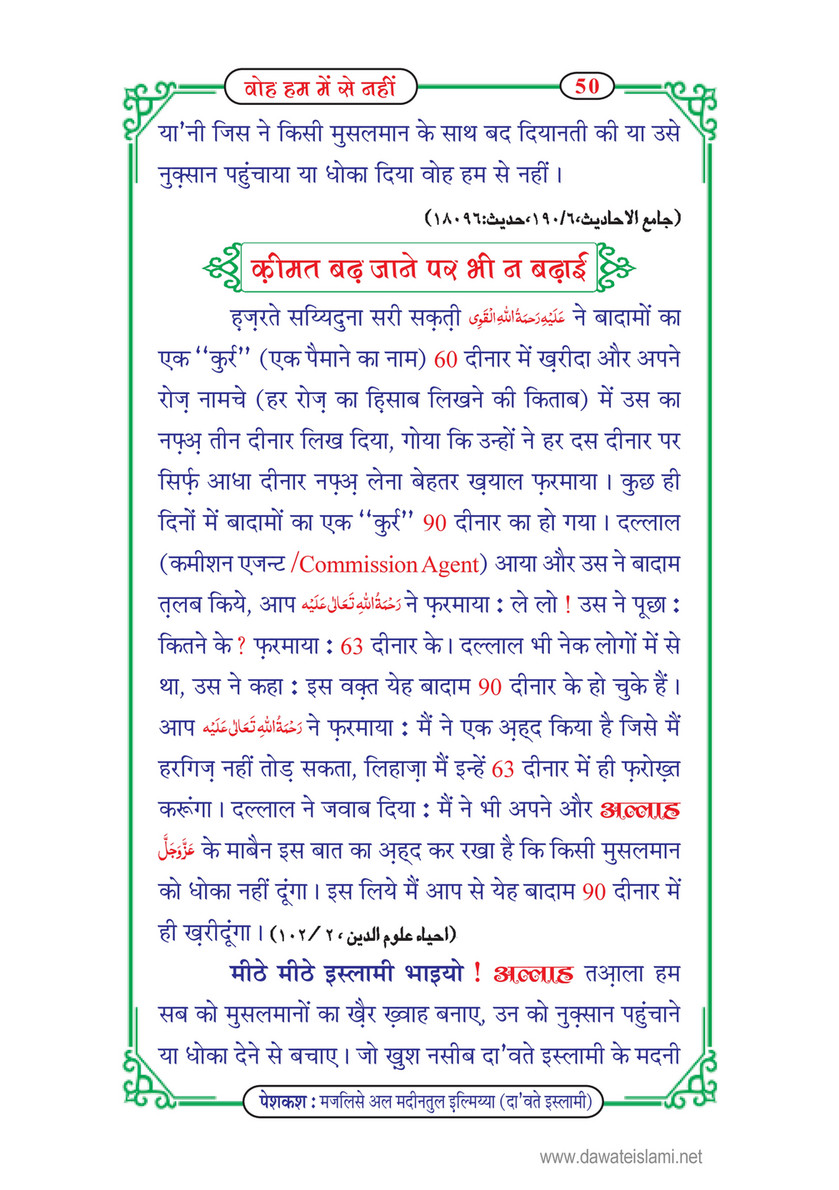 वोह हम में से नहीं
50
या'नी जिस ने किसी मुसलमान के साथ बद दियानती की या उसे
नुक़्सान पहुंचाया या धोका दिया वोह हम से नहीं ।
(جامع الاحادیث،۱۹۰/۶،حدیث:۱۸۰۹۶)
क़ीमत बढ़ जाने पर भी न बढ़ाई
ह़ज़रते सय्यिदुना सरी सक़त़ी عَلَیْہِ رَحمَۃُ اللہِ الْقَوِی ने बादामों का
एक “कुर्र” (एक पैमाने का नाम) 60 दीनार में ख़रीदा और अपने
रोज़ नामचे (हर रोज़ का ह़िसाब लिखने की किताब) में उस का
नफ़्अ़ तीन दीनार लिख दिया, गोया कि उन्हों ने हर दस दीनार पर
सिर्फ़ आधा दीनार नफ़्अ़ लेना बेहतर ख़याल फ़रमाया । कुछ ही
दिनों में बादामों का एक “कुर्र” 90 दीनार का हो गया । दल्लाल
(कमीशन एजन्ट /Commission Agent) आया और उस ने बादाम
त़लब किये, आप رَحْمَۃُ اللہِ تَعَالٰی عَلَیْہ ने फ़रमाया : ले लो ! उस ने पूछा :
कितने के ? फ़रमाया : 63 दीनार के । दल्लाल भी नेक लोगों में से
था, उस ने कहा : इस वक़्त येह बादाम 90 दीनार के हो चुके हैं ।
आप رَحْمَۃُ اللہِ تَعَالٰی عَلَیْہ ने फ़रमाया : मैं ने एक अ़ह्द किया है जिसे मैं
हरगिज़ नहीं तोड़ सकता, लिहाज़ा मैं इन्हें 63 दीनार में ही फ़रोख़्त
करूंगा । दल्लाल ने जवाब दिया : मैं ने भी अपने और अल्लाह
عَزَّوَجَلَّ के माबैन इस बात का अ़ह्द कर रखा है कि किसी मुसलमान
को धोका नहीं दूंगा । इस लिये मैं आप से येह बादाम 90 दीनार में
ही ख़रीदूंगा । (احیاء علوم الدین ، ۲ / ۱۰۲)
मीठे मीठे इस्लामी भाइयो ! अल्लाह तआ़ला हम
सब को मुसलमानों का ख़ैर ख़्वाह बनाए, उन को नुक़्सान पहुंचाने
या धोका देने से बचाए । जो ख़ुश नसीब दा'वते इस्लामी के मदनी
पेशकश : मजलिसे अल मदीनतुल इ़ल्मिय्या (दा'वते इस्लामी)
www.dawateislami.net